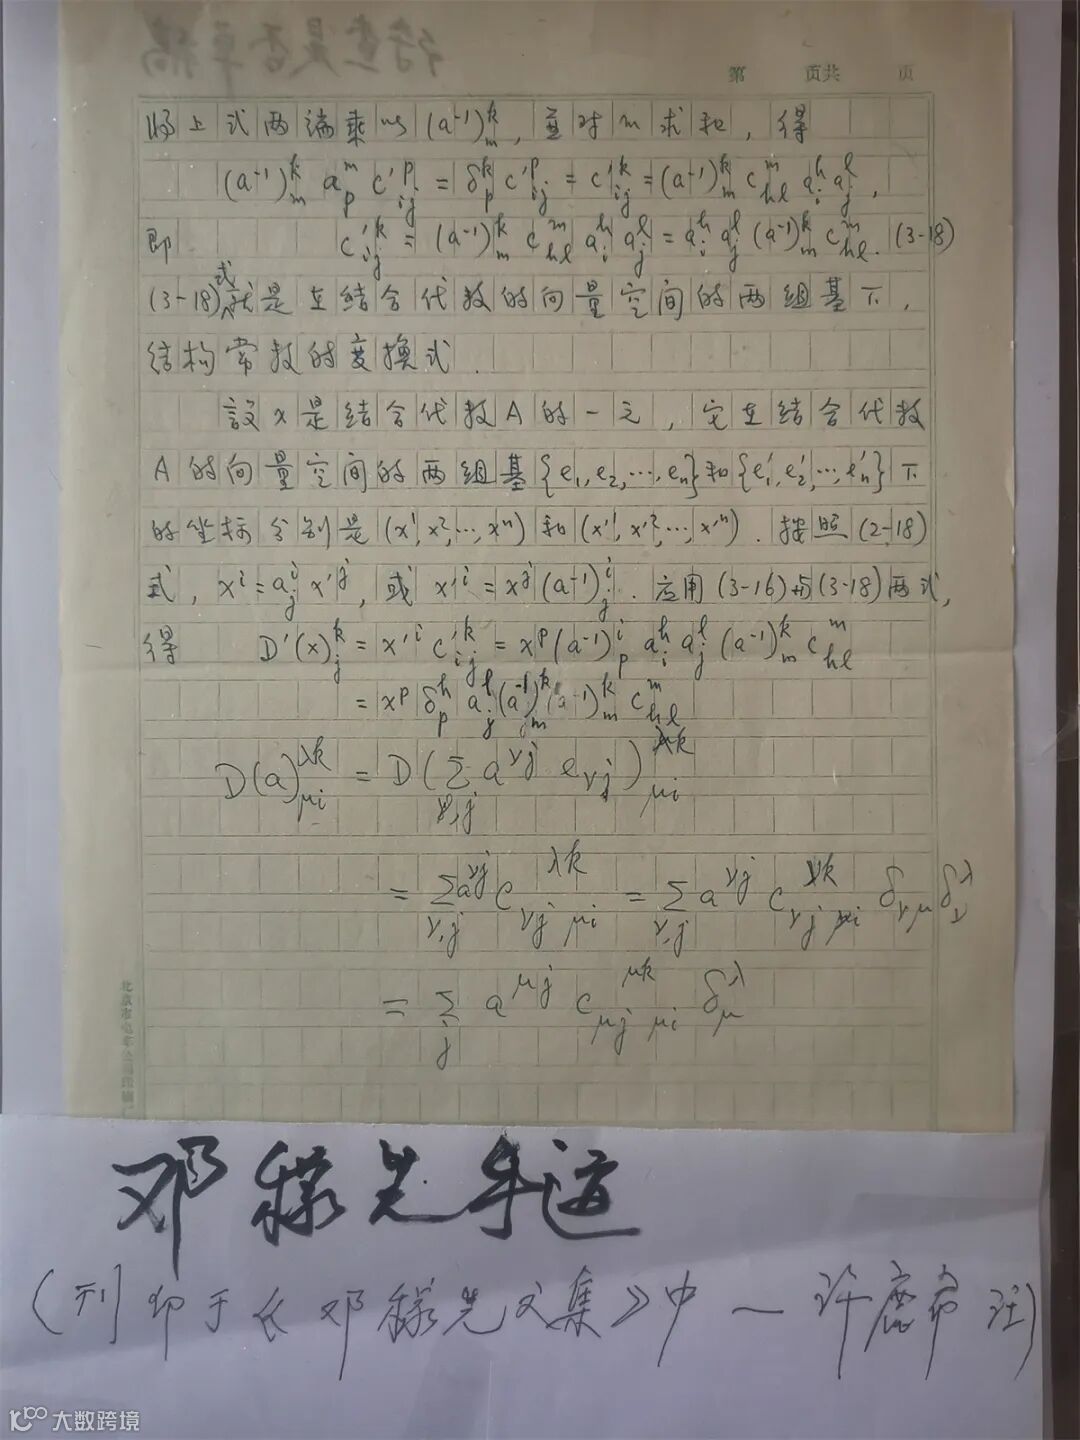 待查是否草稿
第 页共 页
将上式两端乘以 (a⁻¹)ᵏₘ, 並对 m 求和, 得
(a⁻¹)ᵏₘ aᵐₚ c'ᵖᵢⱼ = δᵏₚ c'ᵖᵢⱼ = c'ᵏᵢⱼ = (a⁻¹)ᵏₘ cᵐₕₗ aʰᵢ aˡⱼ,
即 c'ᵏᵢⱼ = (a⁻¹)ᵏₘ cᵐₕₗ aʰᵢ aˡⱼ = aʰᵢ aˡⱼ (a⁻¹)ᵏₘ cᵐₕₗ. (3-18)
(3-18)式就是在结合代数的向量空间的两组基下,
结构常数的变换式.
設 x 是结合代数 A 的一元, 它在结合代数
A 的向量空间的两组基{e₁, e₂, ..., eₙ}和{e'₁, e'₂, ..., e'ₙ}下
的坐标分别是 (x¹, x², ..., xⁿ) 和 (x'¹, x'², ..., x'ⁿ). 按照 (2-18)
式, xⁱ = aⁱⱼ x'ʲ, 或 x'ⁱ = xʲ (a⁻¹)ⁱⱼ. 应用 (3-16) 与 (3-18) 两式,
得 D'(x)ᵏⱼ = x'ⁱ c'ᵏᵢⱼ = xᵖ (a⁻¹)ⁱₚ aʰᵢ aˡⱼ (a⁻¹)ᵏₘ cᵐₕₗ
= xᵖ δʰₚ aˡⱼ (a⁻¹)ᵏₘ cᵐₕₗ
D(a)^{λk}_{μi} = D(Σ_{ν,j} a^{νj} e_{νj})^{λk}_{μi}
= Σ_{ν,j} a^{νj} c^{λk}_{νj μi} = Σ_{ν,j} a^{νj} c^{νk}_{νj μi} δ_{νμ} δ^λ_ν
= Σ_j a^{μj} c^{μk}_{μj μi} δ^λ_μ
北京市电车公司印刷厂
邓稼先手迹
(刊印于《邓稼先文集》中 — 许鹿希 注)
大数跨境